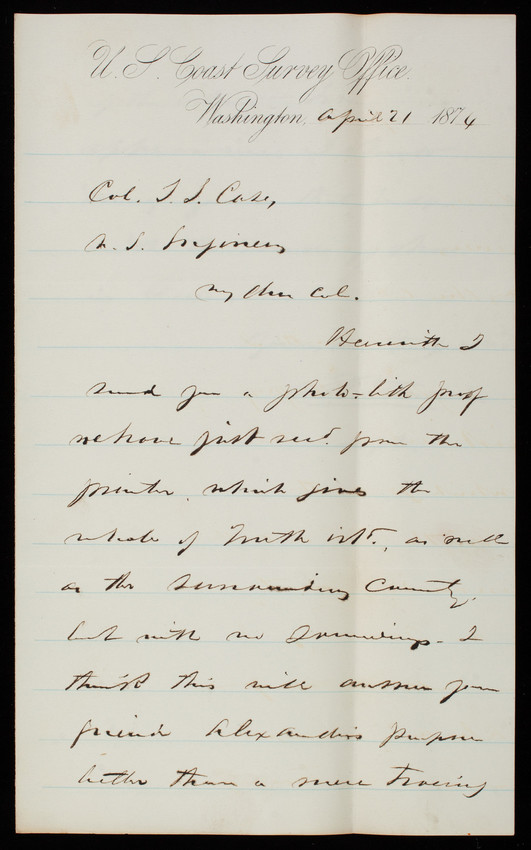 U. S. Coast Survey Office.
Washington, April 21 1874
Col. T. L. Case,
U. S. Engineers
My Dear Col.
Herewith I
send you a photo-lith proof
we have just recd. from the
printer, which gives the
whole of , as well
as the surrounding County,
but with no Soundings - I
think this will answer your
friend Alexanders purpose
better than a mere tracing